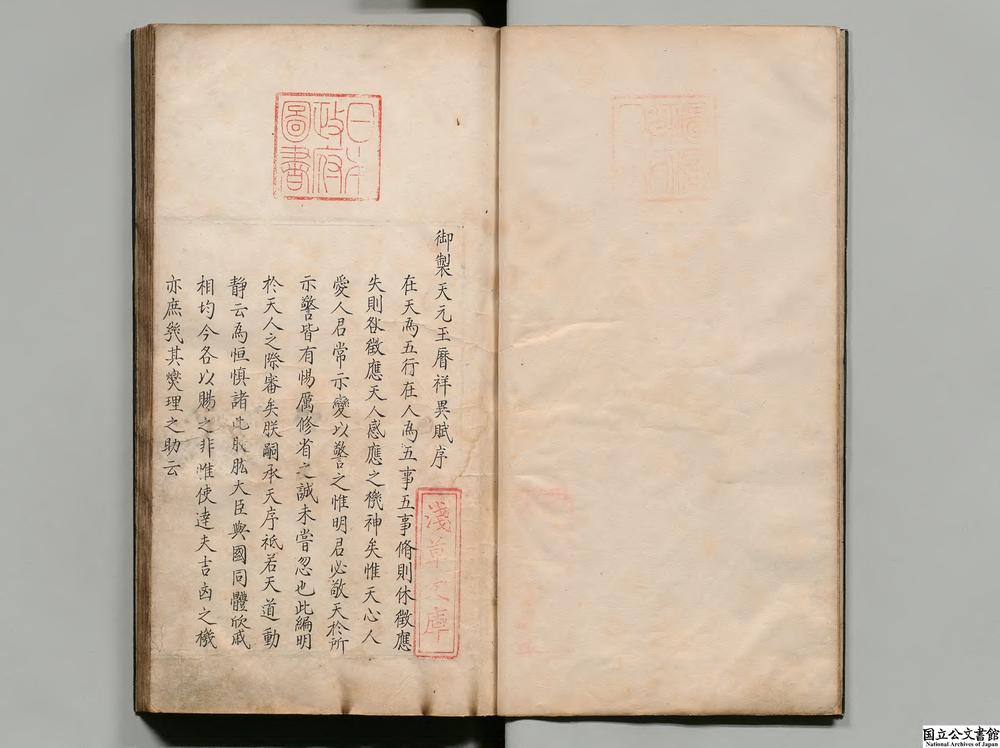 御製天元玉曆祥異賦序
在天為五行在人為五事五事脩則休徵應
失則咎徵應天人感應之機神矣惟天心人
愛人君常示變以警之惟明君必敬天於所
示警皆有惕厲修省之誠未嘗忽也此編明
於天人之際審矣朕嗣承天序祗若天道動
靜云為恒慎諸此股肱大臣與國同體欣戚
相均今各以賜之非惟使達夫吉凶之機
亦庶幾其爕理之助云
日本
政府
圖書
淺草文庫
国立公文書館
National Archives of Japan